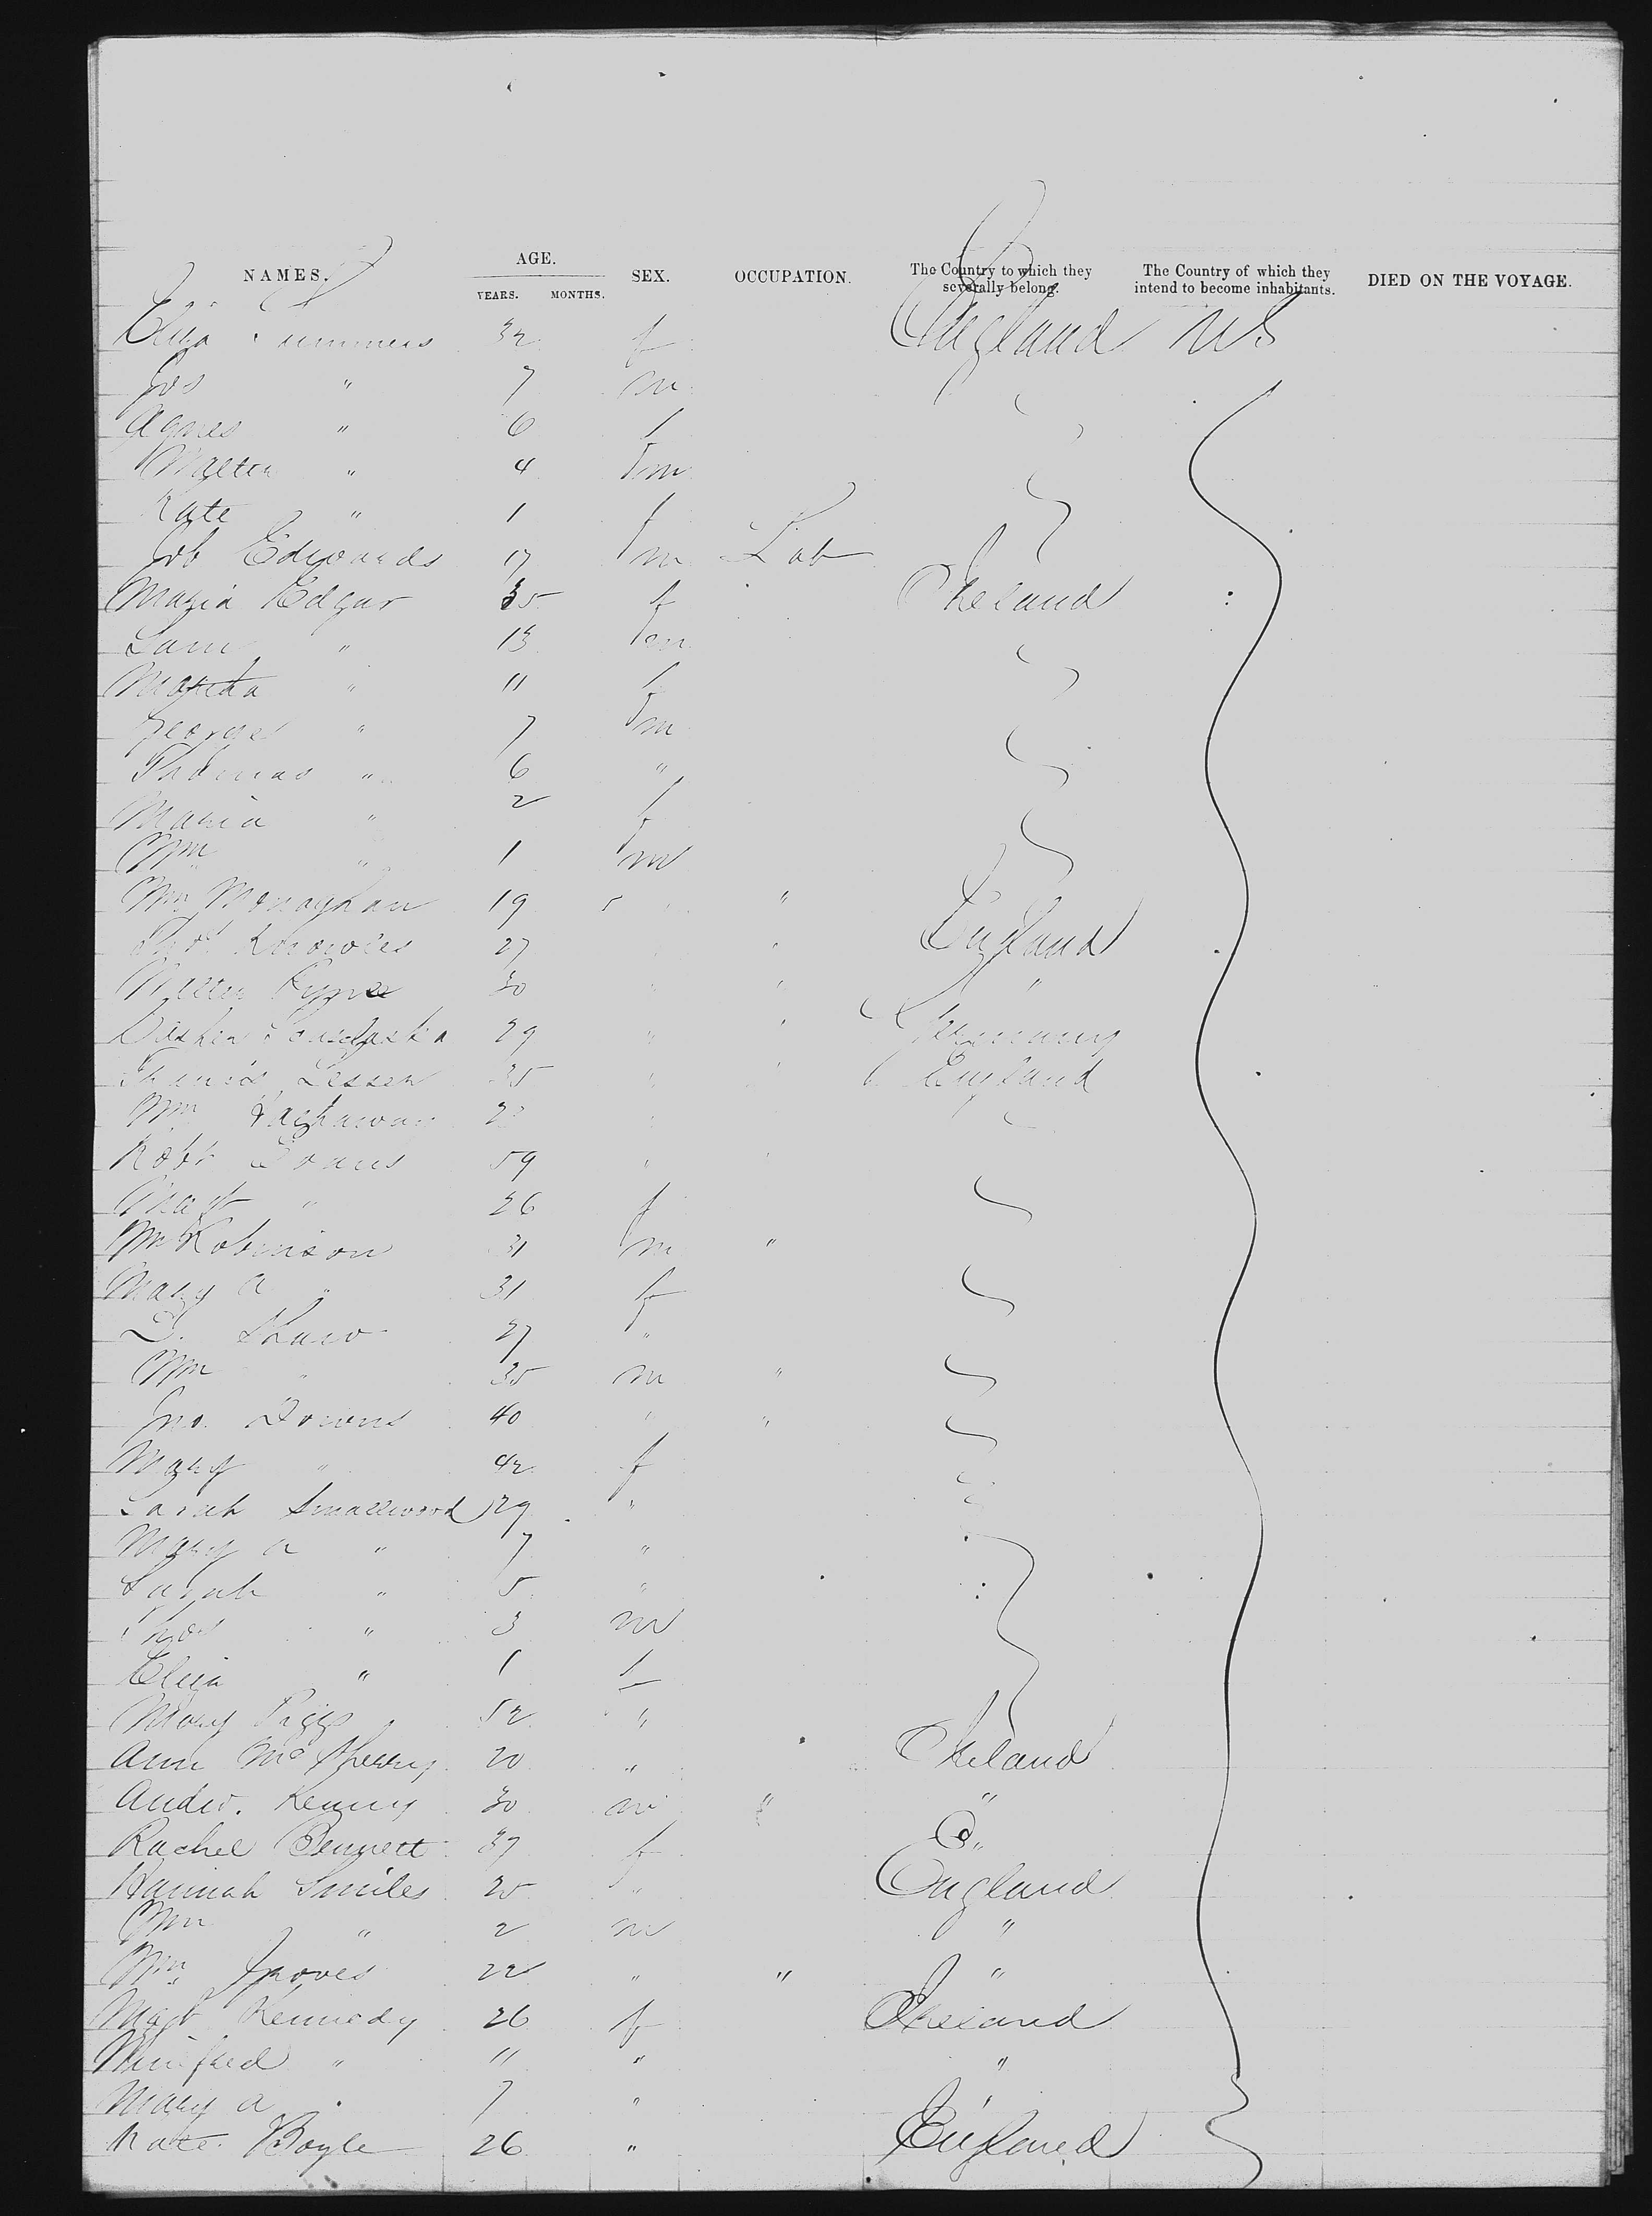 NAMES. AGE. YEARS. MONTHS. SEX. OCCUPATION. The Country to which they severally belong. The Country of which they intend to become inhabitants. DIED ON THE VOYAGE.
Eliza Summers 32 f England US
Jos " 7 m
Agnes " 6 f
Walter " 4 m
Kate " 1 f
Job Edwards 17 m Lab
Maria Edgar 35 f Ireland
Sam " 13 m
Martha " 11 f
George " 7 m
Thomas " 6 "
Maria " 2 f
Wm " 1 m
Wm Monaghan 19 "
Thos Knowles 27 " England
30 " " "
29 " " Germany
Lessen 35 " " England
Wm Hathaway
Robt Evans 59 " "
Margt " 26 f
Wm Robinson 31 m "
Mary A " 31 f
D. Shaw 27 "
Wm " 35 m "
Jno. Downs 40 " "
Mary " 42 f
Sarah Smallwood 29 "
Mary A " 7 "
Sarah " 5 "
Thos " 3 m
Eliza " 1 f
Mary Riggs 52 "
Ann Mc 20 " Ireland
Andw. Kenny 30 m " "
Rachel Bennett 37 f "
Hannah Smiles 20 " England
Wm " 2 m "
Wm Groves 22 " " "
Margt Kennedy 26 f Ireland
Winifred " 11 " "
Mary A " 7 " "
Kate Boyle 26 " England